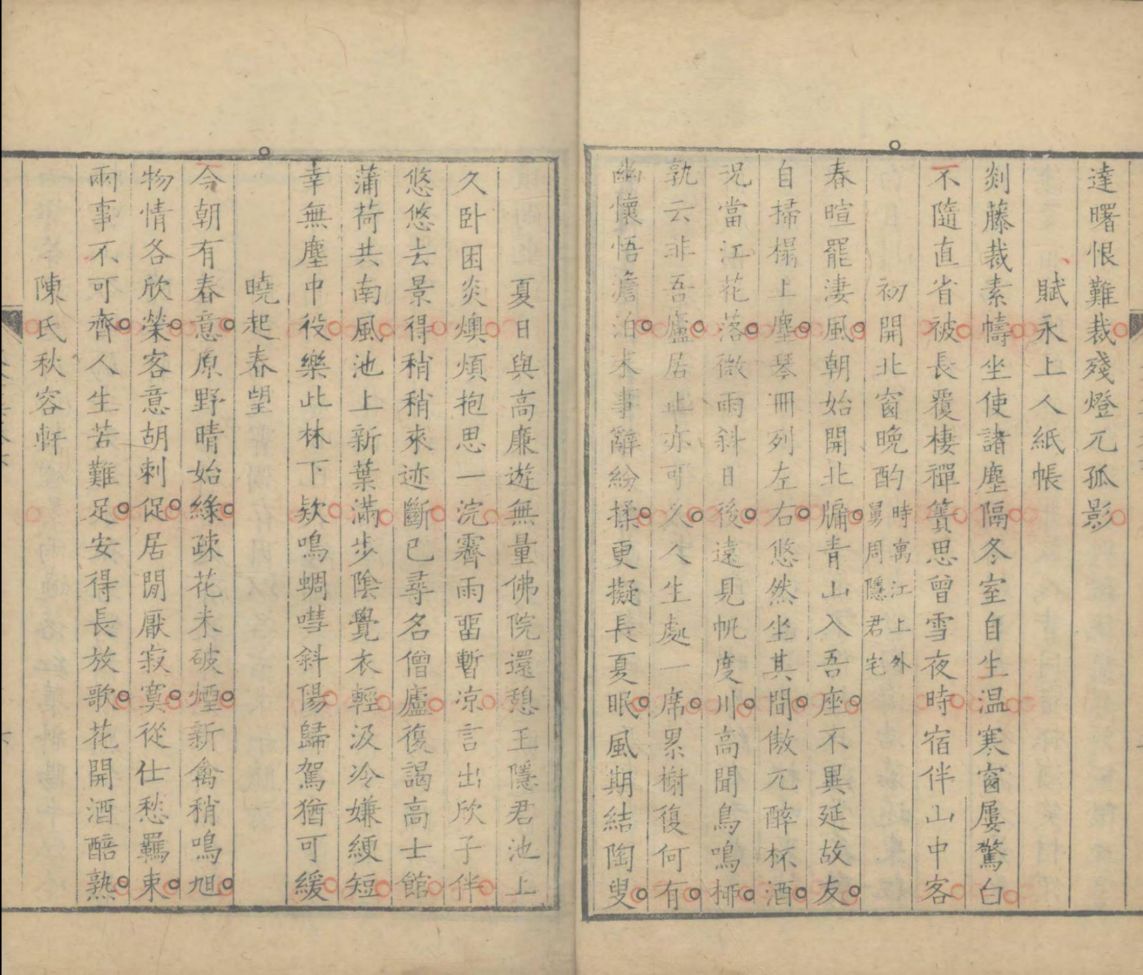 達曙恨難裁殘燈兀孤影
賦永上人紙帳
剡藤裁素幬坐使諸塵隔冬室自生温寒窗屢驚白
不隨直省被長覆棲禪簀思曾雪夜時宿伴山中客
初開北窗晚酌時寓江上外舅周隱君宅
春暄罷淒風朝始開北牖青山入吾座不異延故友
自掃榻上塵琴冊列左右悠然坐其間傲兀醉杯酒
況當江花落微雨斜日後遠見帆度川高聞鳥鳴柳
孰云非吾廬居止亦可久人生處一席累榭復何有
幽懷悟澹泊末事辭紛揉更擬長夏眠風期結陶叟
夏日與高廉遊無量佛院還憩王隱君池上
久卧困炎燠煩抱思一浣霽雨畱暫凉言出欣子伴
悠悠去景得稍稍來迹斷已尋名僧廬復謁高士館
蒲荷共南風池上新葉滿步陰覺衣輕汲冷嫌綆短
幸無塵中役樂此林下欵鳴蜩嘒斜陽歸駕猶可緩
曉起春望
今朝有春意原野晴始綠疎花未破煙新禽稍鳴旭
物情各欣榮客意胡刺促居閒厭寂寞從仕愁羈束
兩事不可齊人生苦難足安得長放歌花開酒醅熟
陳氏秋容軒